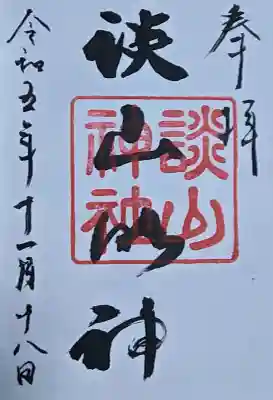 奉拝
談山神
談山
神社
令和五年十一月十八日